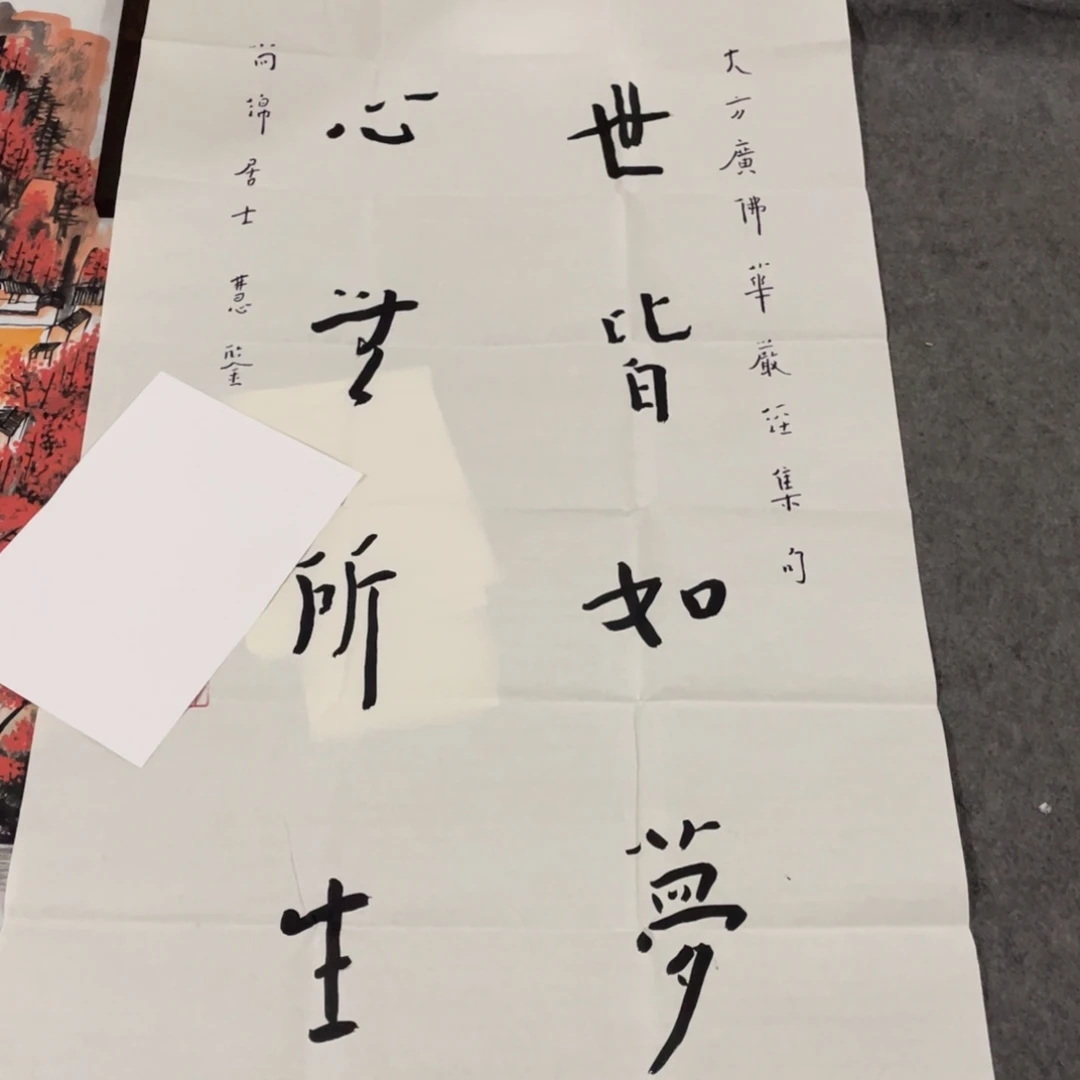 大方廣佛華嚴經集句
世皆如夢
心無所生
尚綿居士 慧鋻